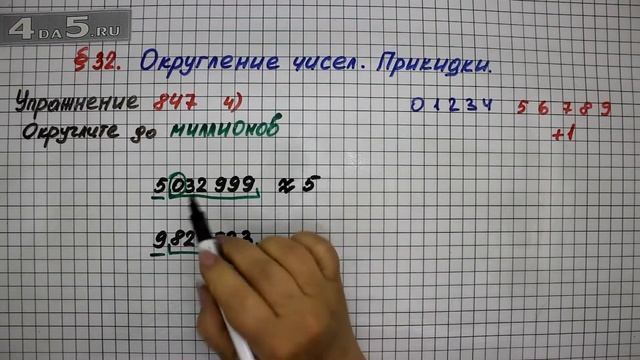 4DA5.RU
§ 32. Округление чисел. Прикидки.
Упражнение 847 4)
0 1 2 3 4 5 6 7 8 9
+1
Округлите до миллионов
5 032 999 ≈ 5
9 82